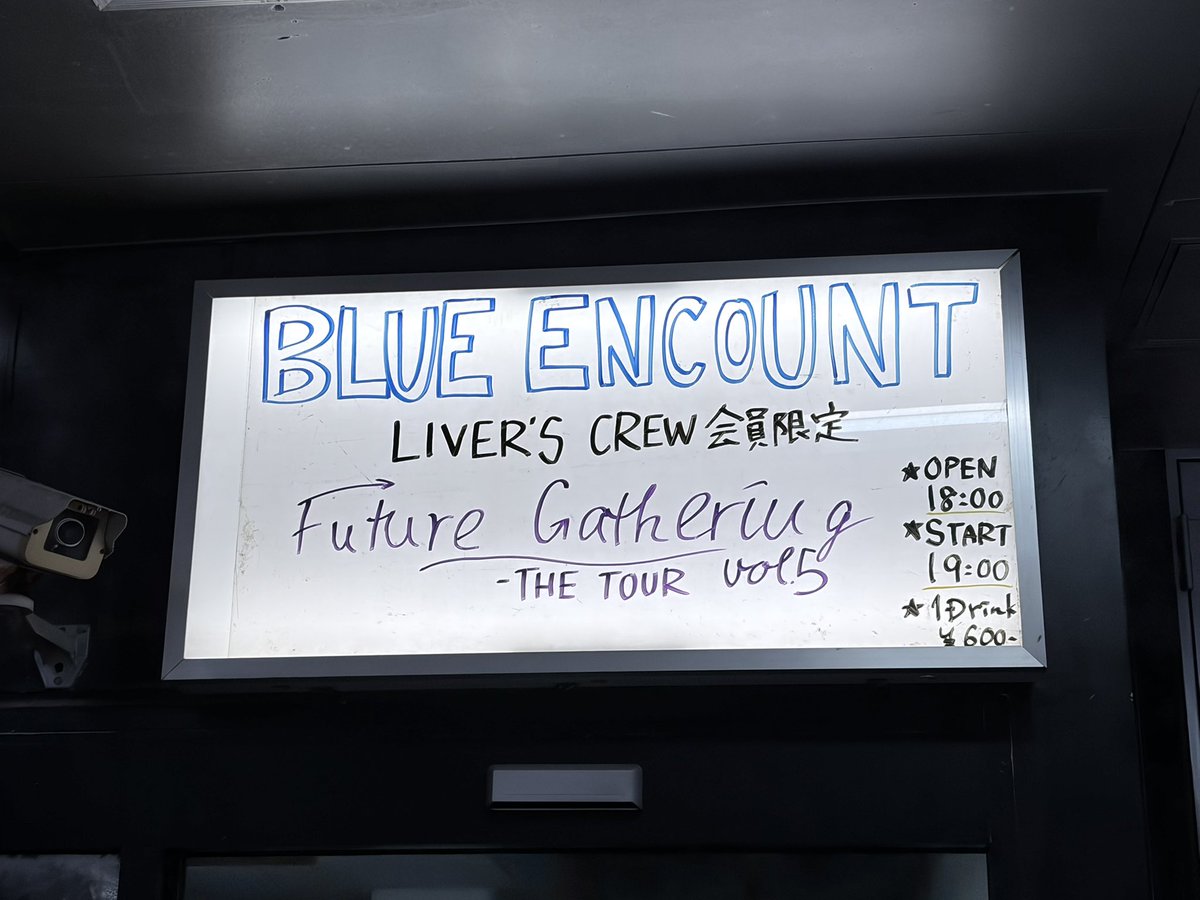 BLUE ENCOUNT
LIVER'S CREW 会員限定
Future Gathering
-THE TOUR vol.5
★OPEN
18:00
★START
19:00
★1Drink
¥600-